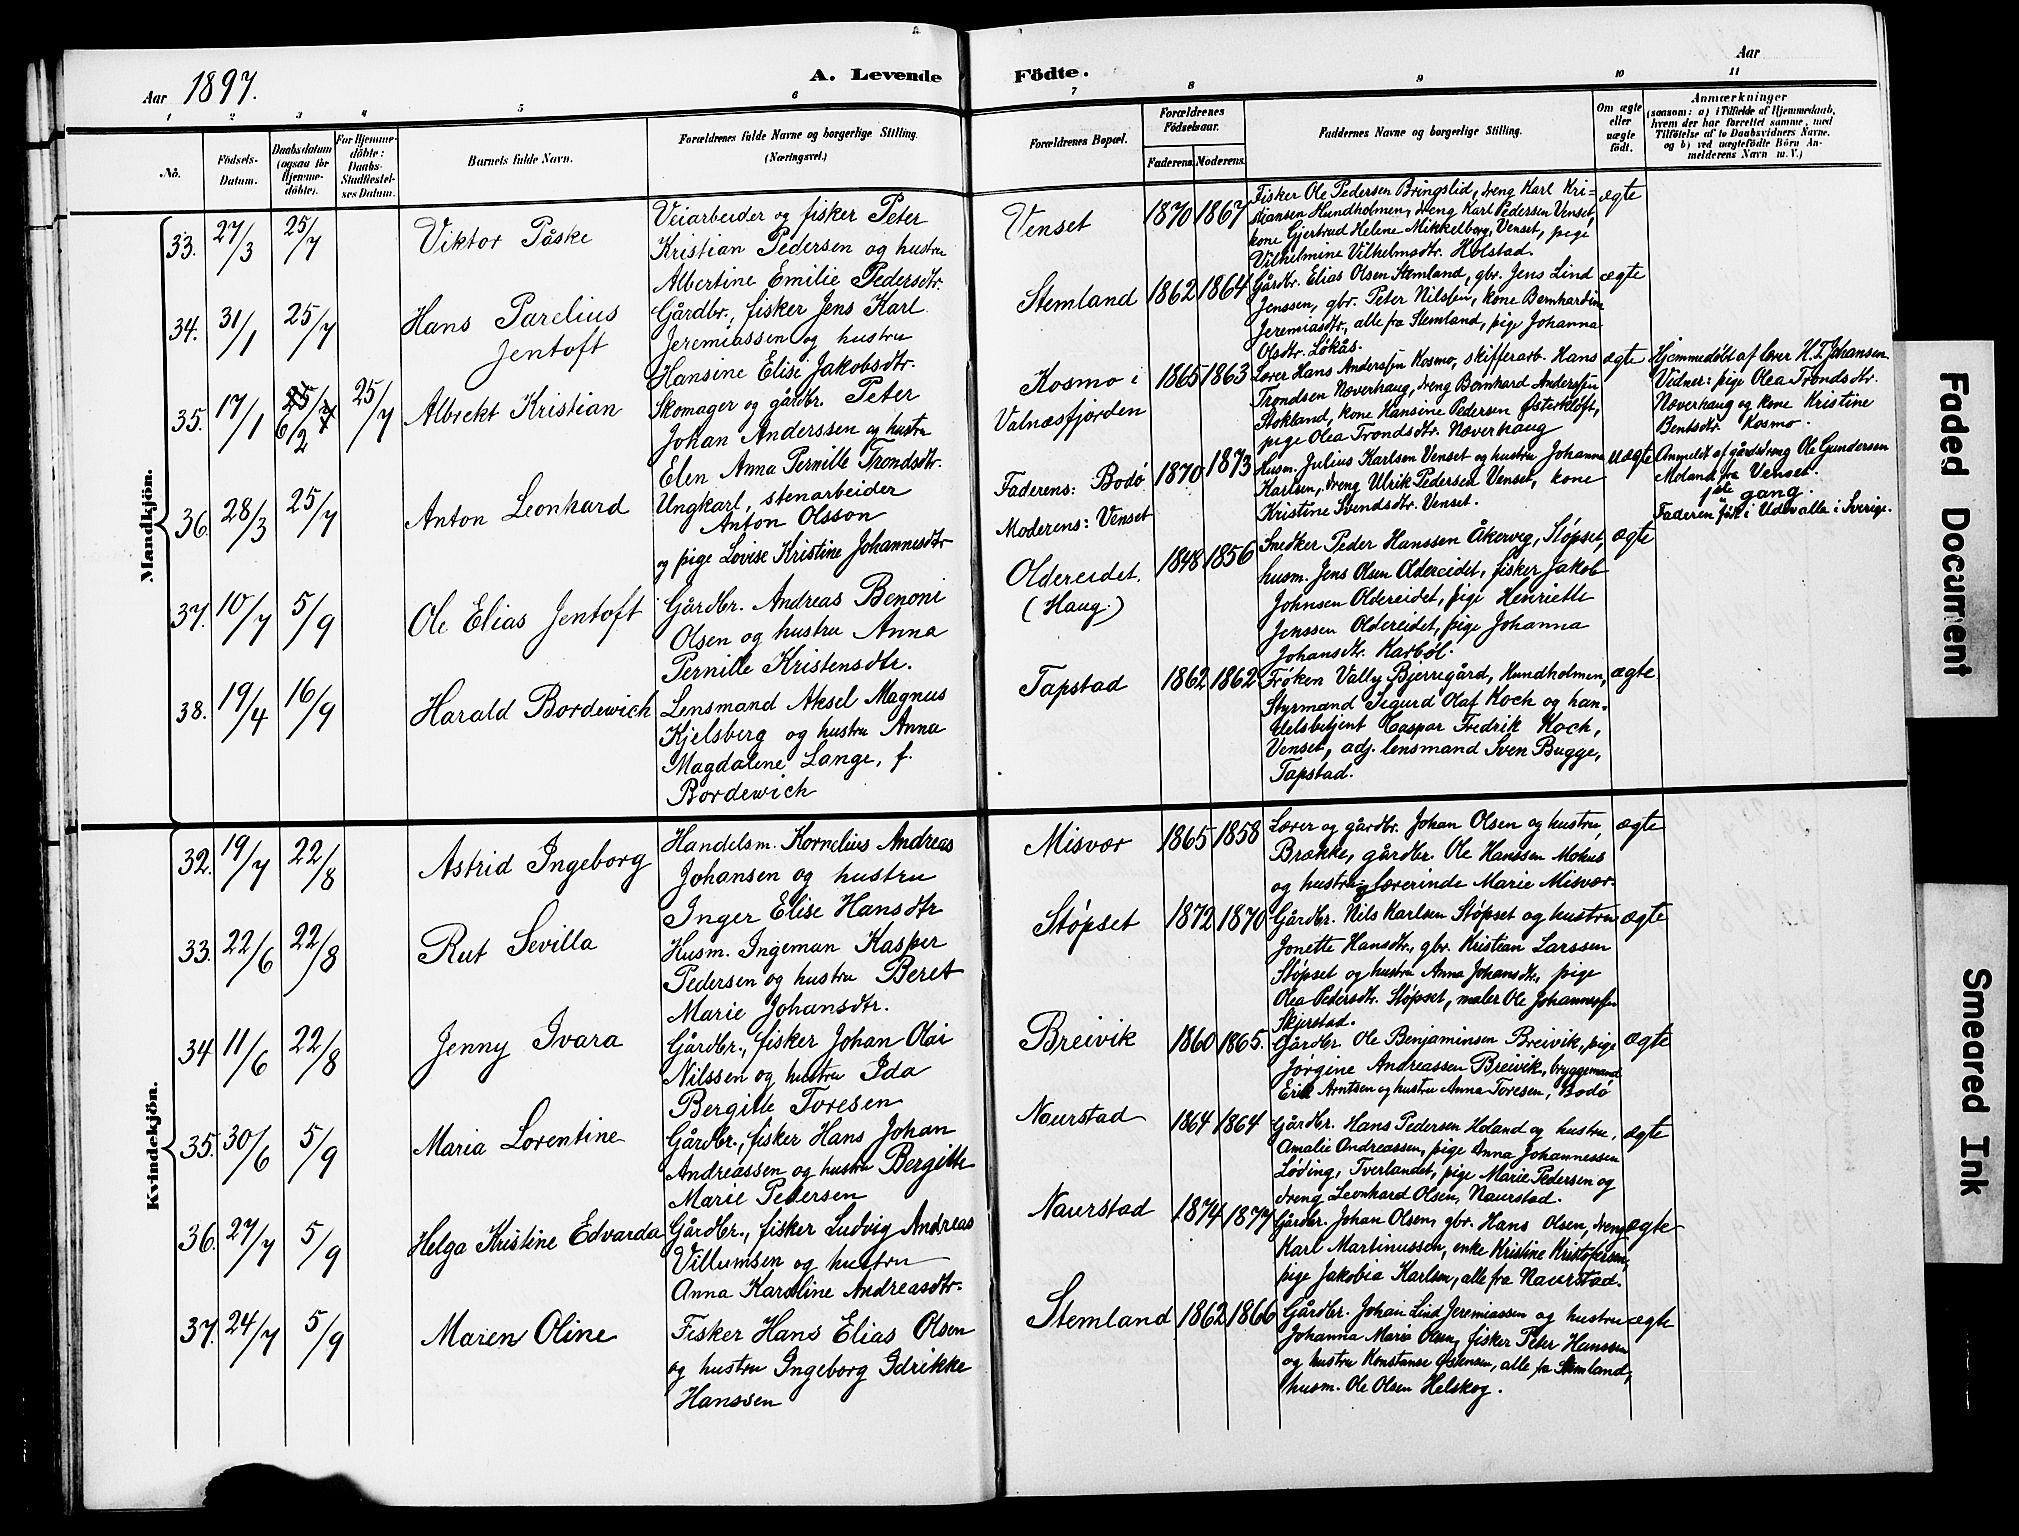 Aar 1897.
A. Levende Födte.
Aar
1 2 3 4 5 6 7 8 9 10 11
No.
Födsels-Datum.
Daabsdatum (ogsaa for Hjemme-döbte).
For Hjemme-döbte: Daabs-Stadfæstel-ses Datum.
Barnets fulde Navn.
Forældrenes fulde Navne og borgerlige Stilling. (Næringsvei.)
Forældrenes Bopæl.
Forældrenes Födselsaar.
Faderens. Moderens.
Faddernes Navne og borgerlige Stilling.
Om ægte eller uægte födt.
Anmærkninger
(saasom: a) i Tilfælde af Hjemmedaab,
hvem der har forrettet samme, med
Tilföielse af to Daabsvidners Navne,
og b) ved uægtefödte Börn An-
melderens Navn m. V.)
Mandkjön.
33. 27/3 25/7 Viktor Påske
Veiarbeider og fisker Peter
Kristian Pedersen og hustru
Albertine Emilie Pedersdtr.
Venset 1870 1867
Fisker Ole Pedersen Bringslid, dreng Karl Kri=
stiansen Hundholmen, dreng Karl Pedersen Venset,
kone Gjertrud Helene Mikkelborg, Venset, pige
Vilhelmine Vilhelmsdtr. Holstad.
ægte
34. 31/1 25/7 Hans Parelius
Jentoft
Gårdbr., fisker Jens Karl
Jeremiassen og hustru
Hansine Elise Jakobsdtr.
Stemland 1862 1864
Gårdbr. Elias Olsen Stemland, gbr. Jens Lind
Jenssen, gbr. Peter Nilssen, kone Bernhardine
Jeremiasdtr., alle fra Stemland, pige Johanna
Olsdtr. Løkås.
ægte
35. 17/1 25/7 6/2 25/7 Albrekt Kristian
Skomager og gårdbr. Peter
Johan Anderssen og hustru
Elen Anna Pernille Trondsdtr.
Kosmo i
Valnæsfjorden
1865 1863
Lærer Hans Anderssen Kosmo, skifferarb. Hans
Trondsen Næverhaug, dreng Bernhard Anderssen
Stokland, kone Hansine Pedersen Østerkløft,
pige Olea Trondsdtr. Næverhaug
ægte
Hjemmedøbt af lærer H. T. Johansen
Vidner: pige Olea Tronds dtr.
Næverhaug og kone Kristine
Bentsdtr. Kosmo.
36. 28/3 25/7 Anton Leonhard
Ungkarl, stenarbeider
Anton Olsson
og pige Lovise Kristine Johannesdtr
Faderens: Bodø
Moderens: Venset
1870 1873
Husm. Julius Karlsen Venset og hustru Johanna
Karlsen, dreng Ulrik Pedersen Venset, kone
Kristine Svendsdtr. Venset.
uægte
Anmeldt af gårdsdreng Ole Gundersen
Moland fra Venset.
1ste gang.
Faderen født i Udevalle i Sverige.
37. 10/7 5/9 Ole Elias Jentoft
Gårdbr. Andreas Benoni
Olsen og hustru Anna
Pernille Kristensdtr.
Oldereidet.
(Haug.)
1848 1856
Snedker Peder Hanssen Åkervig, Støpset,
husm. Jens Olsen Oldereidet, fisker Jakob
Johnsen Oldereidet, pige Henriette
Jenssen Oldereidet, pige Johanna
Johansdtr. Karbøl.
ægte
38. 19/4 16/9 Harald Bordewich
Lensmand Aksel Magnus
Kjelsberg og hustru Anna
Magdalene Lange, f.
Bordewich
Tapstad 1862 1862
Frøken Vally Bjerregård, Hundholmen,
Styrmand Sigurd Olaf Koch og han=
delsbetjent Caspar Fredrik Koch,
Venset, adj. lensmand Sven Bugge,
Tapstad.
ægte
Kvindekjön.
32. 19/7 22/8 Astrid Ingeborg
Handelsm. Kornelius Andreas
Johansen og hustru
Inger Elise Hansdtr
Misvær 1865 1858
Lærer og gårdbr. Johan Olsen og hustru,
Brække, gårdbr. Ole Hanssen Mohus
og hustru og lærerinde Marie Misvær.
ægte
33. 22/6 22/8 Rut Sevilla
Husm. Ingeman Kasper
Pedersen og hustru Beret
Marie Johansdtr.
Støpset 1872 1870
Gårdbr. Nils Karlsen Støpset og hustru
Jonette Hansdtr., gbr. Kristian Larssen
Støpset og hustru Anna Johansdtr., pige
Olea Pedersdtr. Støpset, maler Ole Johannessen
Skjerstad.
ægte
34 11/6 22/8 Jenny Ivara
Gårdbr., fisker Johan Olai
Nilssen og hustru Ida
Bergitte Toresen
Breivik 1860 1865.
Gårdbr. Ole Benjaminsen Breivik, pige
Jørgine Andreassen Breivik, bryggemand
Erik Arntsen og hustru Anna Toresen, Bodø
ægte
35. 30/6 5/9 Maria Lorentine
Gårdbr., fisker Hans Johan
Andreassen og hustru Bergitte
Marie Pedersen
Naurstad 1864 1864
Gårdbr. Hans Pedersen Holand og hustru,
Amalie Andreassen, pige Anna Johannessen
Løding, Tverlandet, pige Marie Pedersen og
dreng Leonhard Olsen, Naurstad.
ægte
36. 27/7 5/9 Helga Kristine Edvarda
Gårdbr., fisker Ludvig Andreas
Villumsen og hustru
Anna Karoline Andreasdtr.
Naurstad 1874 1877
Gårdbr. Johan Olsen, gbr. Hans Olsen, dreng
Karl Martinussen, enke Kristine Kristofersen,
pige Jakobia Karlsen, alle fra Naurstad.
ægte
37. 24/7 5/9 Maren Oline
Fisker Hans Elias Olsen
og hustru Ingeborg Idrikke
Hanssen
Stemland 1862 1866
Gårdbr. Johan Lind Jeremiassen og hustru
Johanna Maria Olsen, fisker Peter Hanssen
og hustru Konstanse Østensen, alle fra Stemland,
husm. Ole Olsen Helskog.
ægte
Faded Document
Smeared Ink